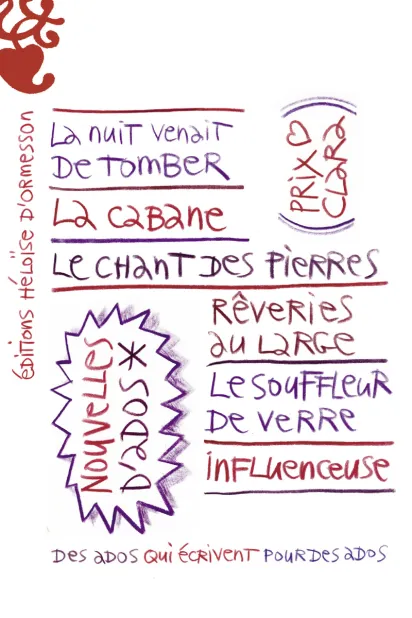 ÉDITIONS HÉLOÏSE D'ORMESSON
La nuit venait
de tomber
PRIX
CLARA
La cabane
Le chant des pierres
Rêveries
au large
Le souffleur
de verre
Influenceuse
NOUVELLES
D'ADOS *
Des ados qui écrivent pour des ados